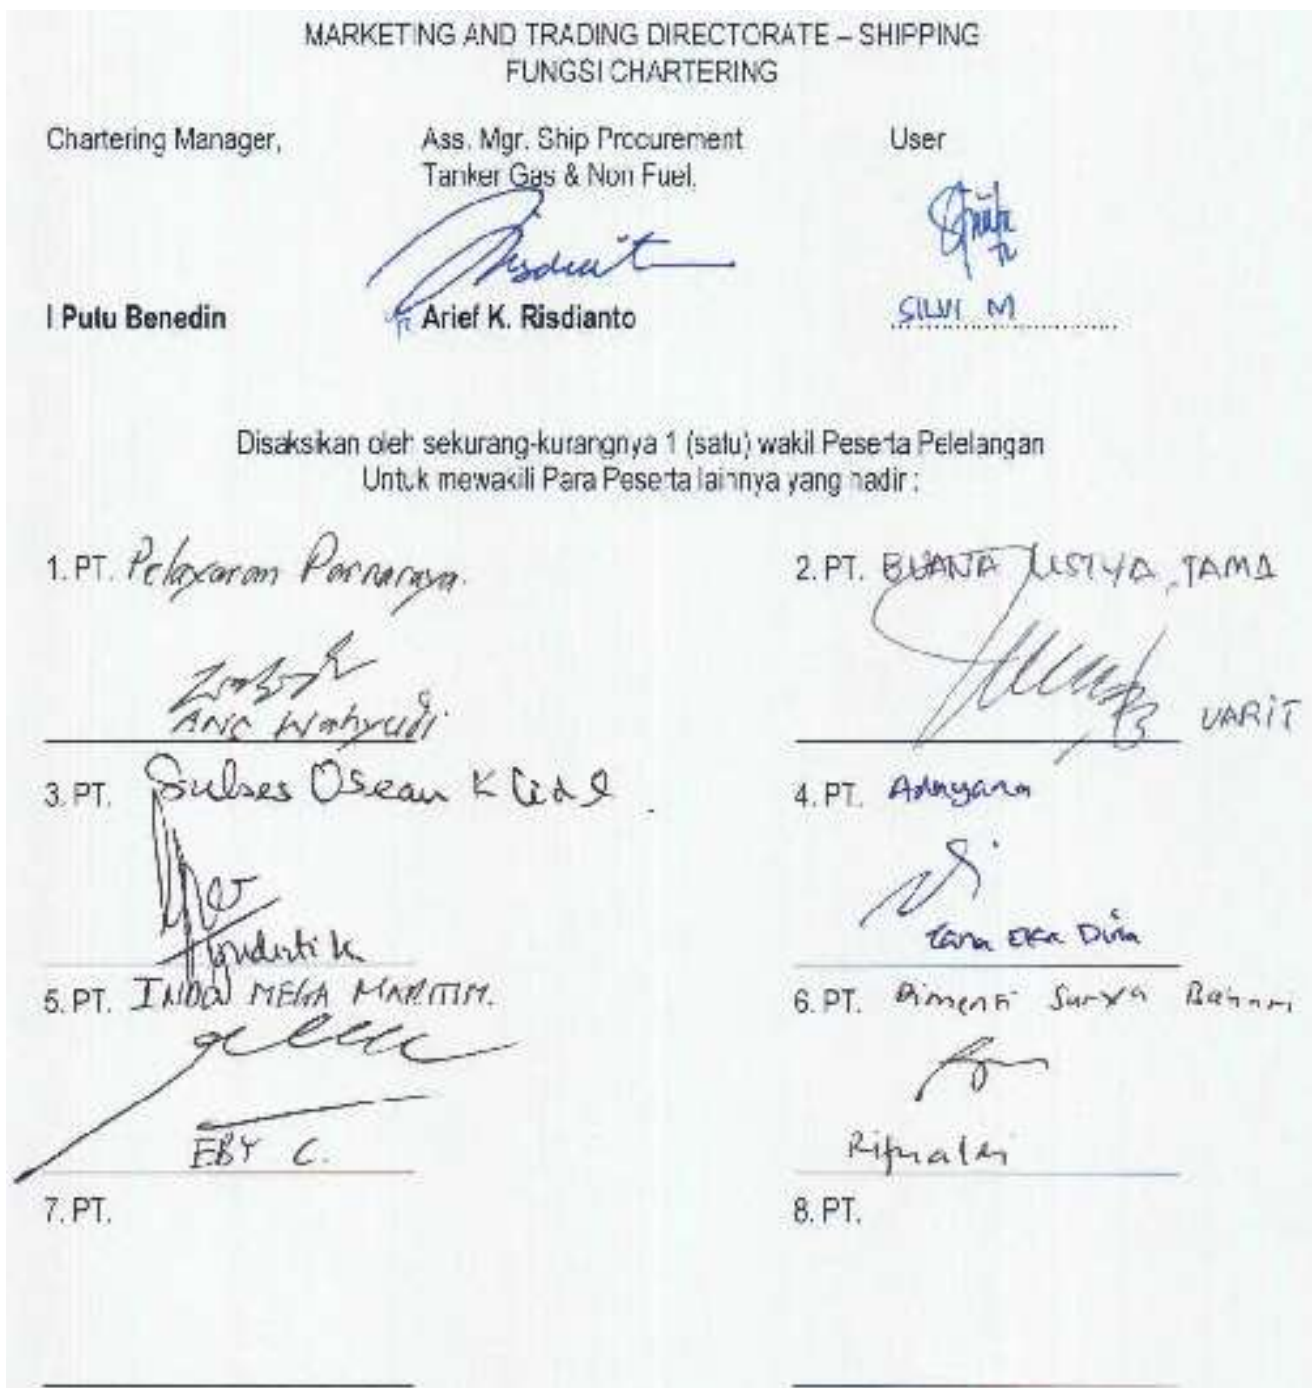 MARKETING AND TRADING DIRECTORATE – SHIPPING
FUNGSI CHARTERING
Chartering Manager,
Ass. Mgr. Ship Procurement
Tanker Gas & Non Fuel,
User
I Putu Benedin
Arief K. Risdianto
SILVI M
Disaksikan oleh sekurang-kurangnya 1 (satu) wakil Peserta Pelelangan
Untuk mewakili Para Peserta lainnya yang hadir :
1. PT. Pelayaran Parnaraya.
Wahyudi
2. PT. BUANA LISTYA TAMA
VARIT
3. PT. Sukses Osean
4. PT. Adnyana
Eka Dina
5. PT. INDO MEGA MARITIM.
EBY C.
6. PT. Surya
7. PT.
8. PT.